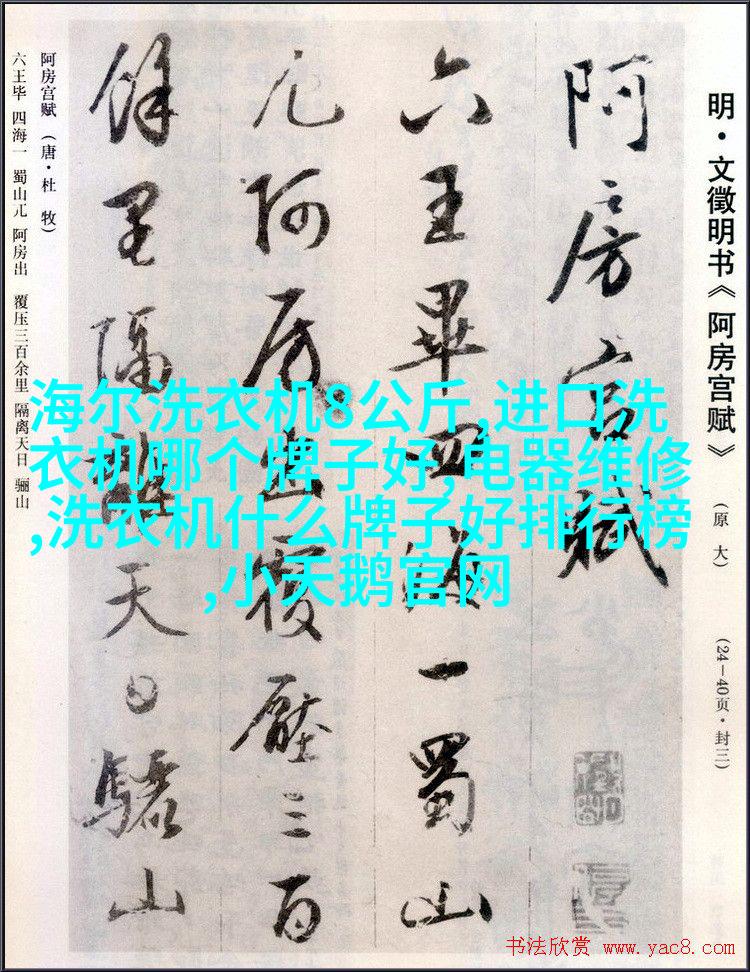 明·文徵明书《阿房宫赋》
(原大)
(24—40页·封三)
阿房宫赋
六王畢四海一蜀山
兀阿房出覆壓三百
餘里隔離天日驪山
阿房宫赋(唐·杜牧)
六王毕 四海一 蜀山兀 阿房出 覆压三百余里 隔离天日 骊山
海尔洗衣机8公斤,进口洗
衣机哪个牌子好,电器维修
,洗衣机什么牌子好排行榜
,小天鹅官网
书法欣赏 www.yac8.com